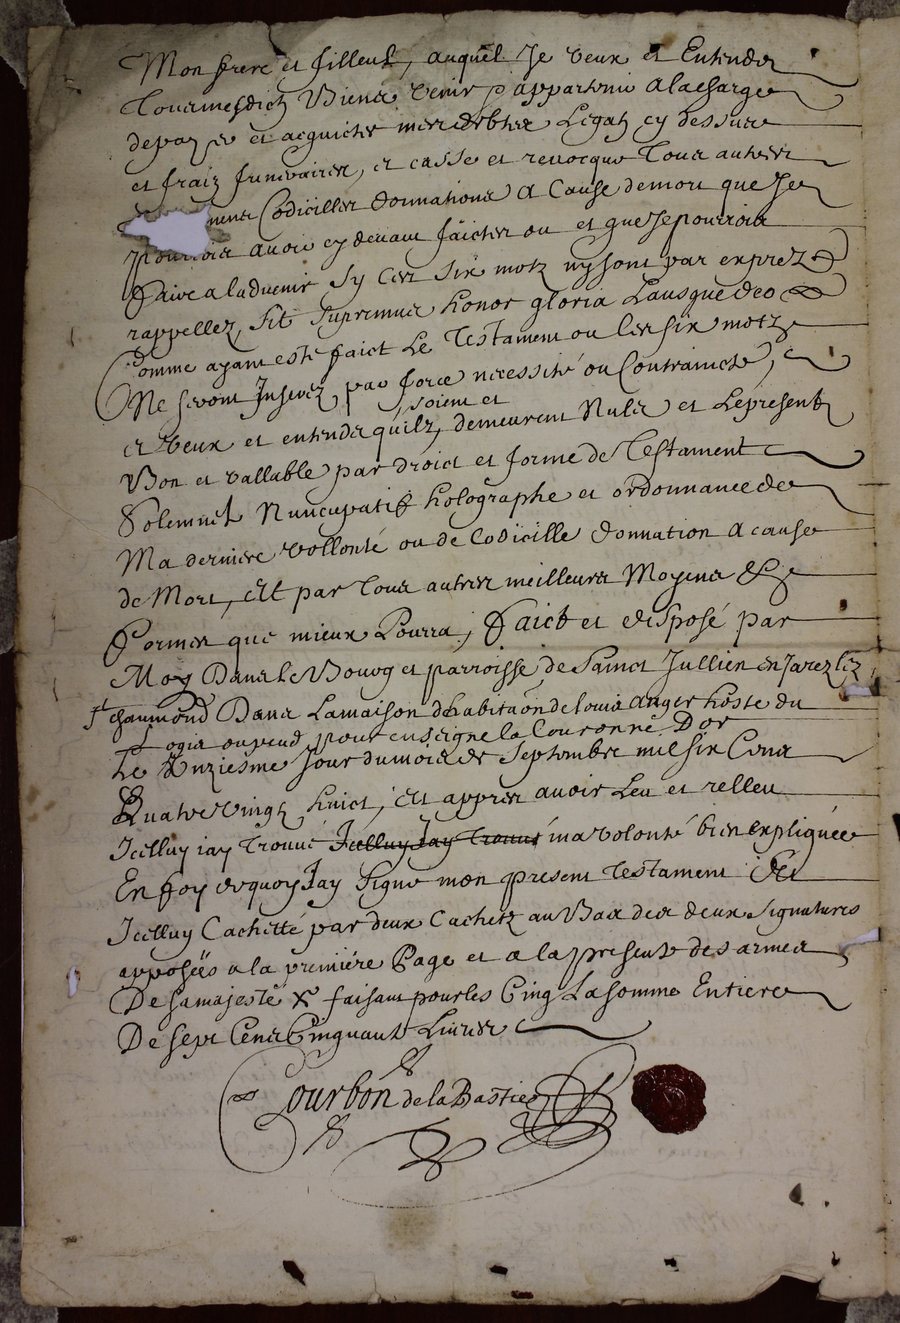 Mon frere et filleul, auquel Je veux et Entendz
Tous mesdictz Biens venir et appartenir a la charge
de payer et acquicter mes debtes Legatz cy dessus
et fraiz funeraires, et casse et revocque Tous autres
mens Codicilles donnations A Cause de mort que Je
pourrois avoir cy devant faictes ou et que Je pourrois
faire a ladvenir Sy Ces Six motz ny sont par exprez
rappellez, Sit Supremus honor gloria Lausque deo
Comme ayant esté faict Le Testament ou les six motz
Ne seront Inserez, par force necessité ou Contraincte,
soient et
et veux et entendz quilz, demeurent Nulz et Le present
Bon et vallable par droict et forme de Testament
Solemnel Nuncupatif holographe et ordonnance de
Ma derniere vollonté ou de Codicille donnation A cause
de Mort, Et par Tous autres meilleurs Moyens &
formes que mieux Pourra, faict et disposé par
Moy Dans le Bourg et parroisse de Sainct Jullien en Jarez lez
St chaumond Dans La maison dhabitaon de louis Anger hoste du
Logis ou pend pour enseigne la Couronne D'or
Le Unziesme Jour du mois de Septembre mil six Cens
Quatre vingtz huict, Et appres avoir Leu et relleu
Icelluy iay Trouvé Icelluy Jay Trouvé ma volonté bien expliquée
En foy dequoy Jay Signé mon present Testament Et
Icelluy Cachetté par deux Cachetz au Bas des deux Signatures
apposéés a la premiére Page et a la presente des armes
De sa majesté & faisant pour les Cinq La somme Entiere
De Sept Cens Cinquante Livres
Courbon de la Bastie